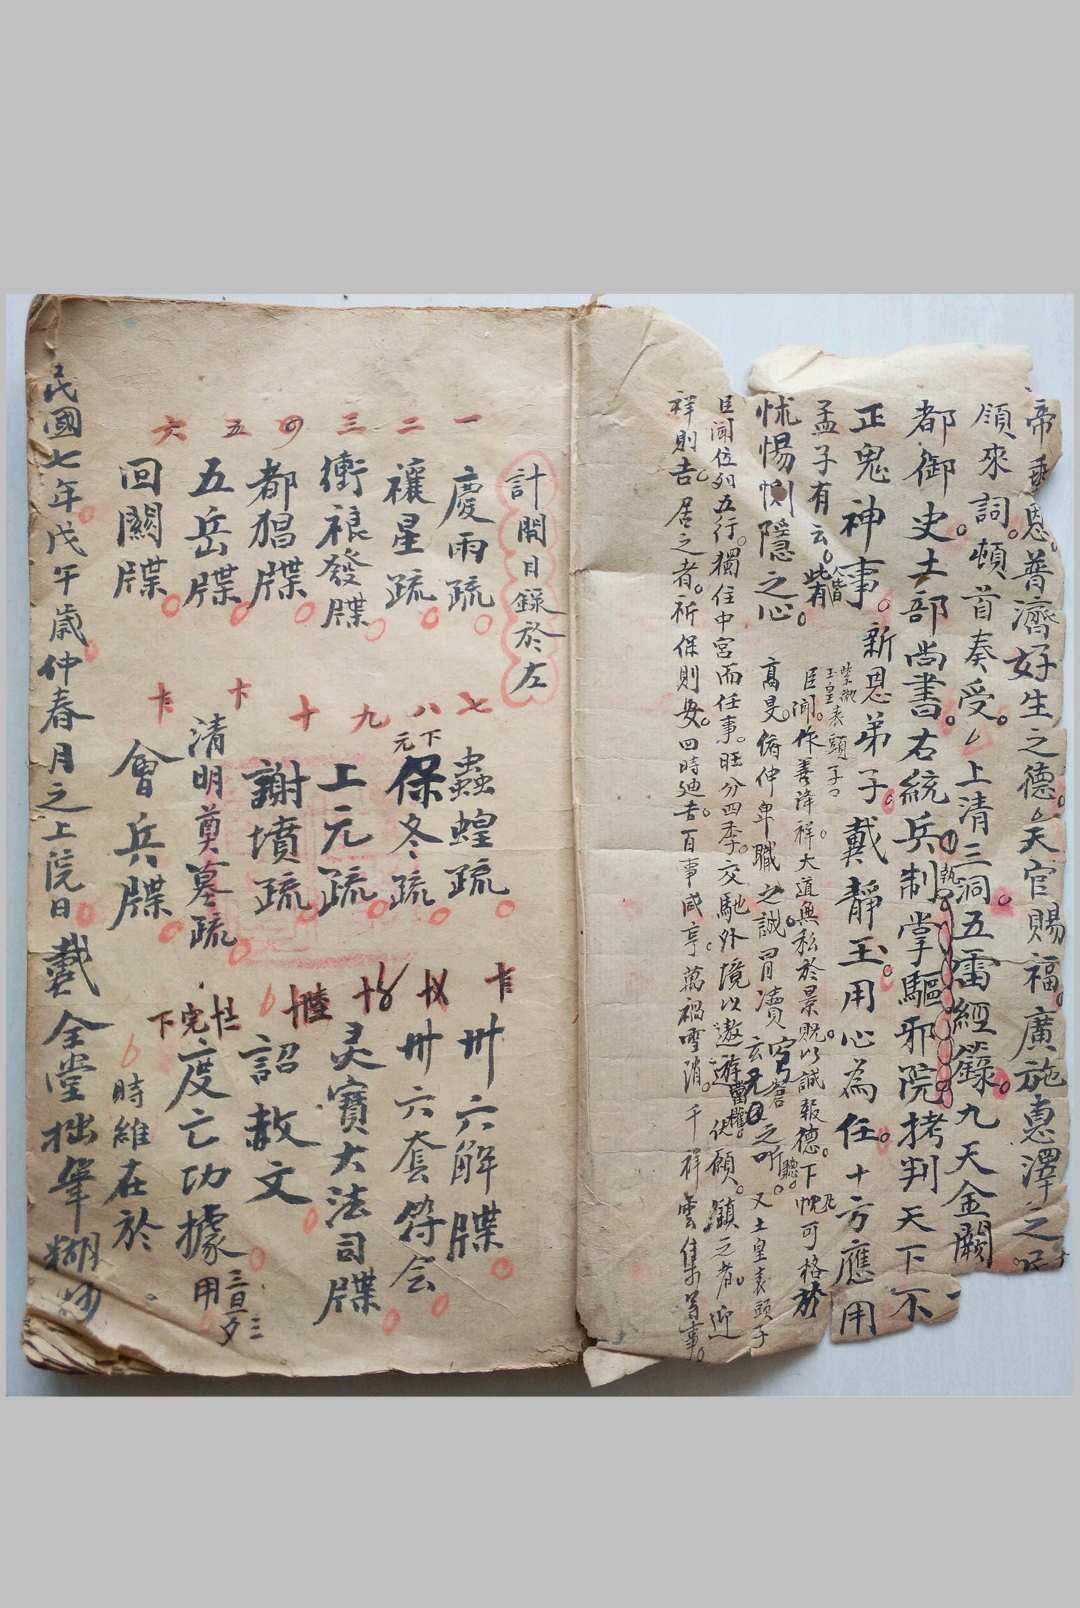 帝垂恩普濟好生之德天官賜福廣施惠澤之
領來詞頓首奏受上清三洞五雷經籙九天金闕
執
都御史土部尚書右統兵制掌驅邪院拷判天下不
正鬼神事新恩弟子戴靜玉用心為任十方應用
孟子有云皆有
怵惕惻隱之心
玉皇表頭子
臣聞作善降祥大道無私於景貺以誠報德下悃可格於
高旻俯仲卑職之誠冒瀆穹蒼之听 又土皇表頭子
臣聞位列五行獨住中宮而任事旺分四季交馳外境以遨遊當權願之者迎
祥則吉居之者祈保則安四時迪吉百事咸亨萬禍雪消千祥雲集善事
計開目錄於左
一 慶雨疏
二 禳星疏
三 衝裉發牒
四 都猖牒
五 五岳牒
六 回關牒
七 蟲蝗疏
八 下元保冬疏
九 上元疏
十 謝墳疏
清明奠墓疏
會兵牒
卅六解牒
卅六套符会
灵寶大法司牒
詔赦文
度亡功據 三旦三夕用
完下
時維在於
民國七年戊午歲仲春月之上院日戴全堂拙筆糊抄